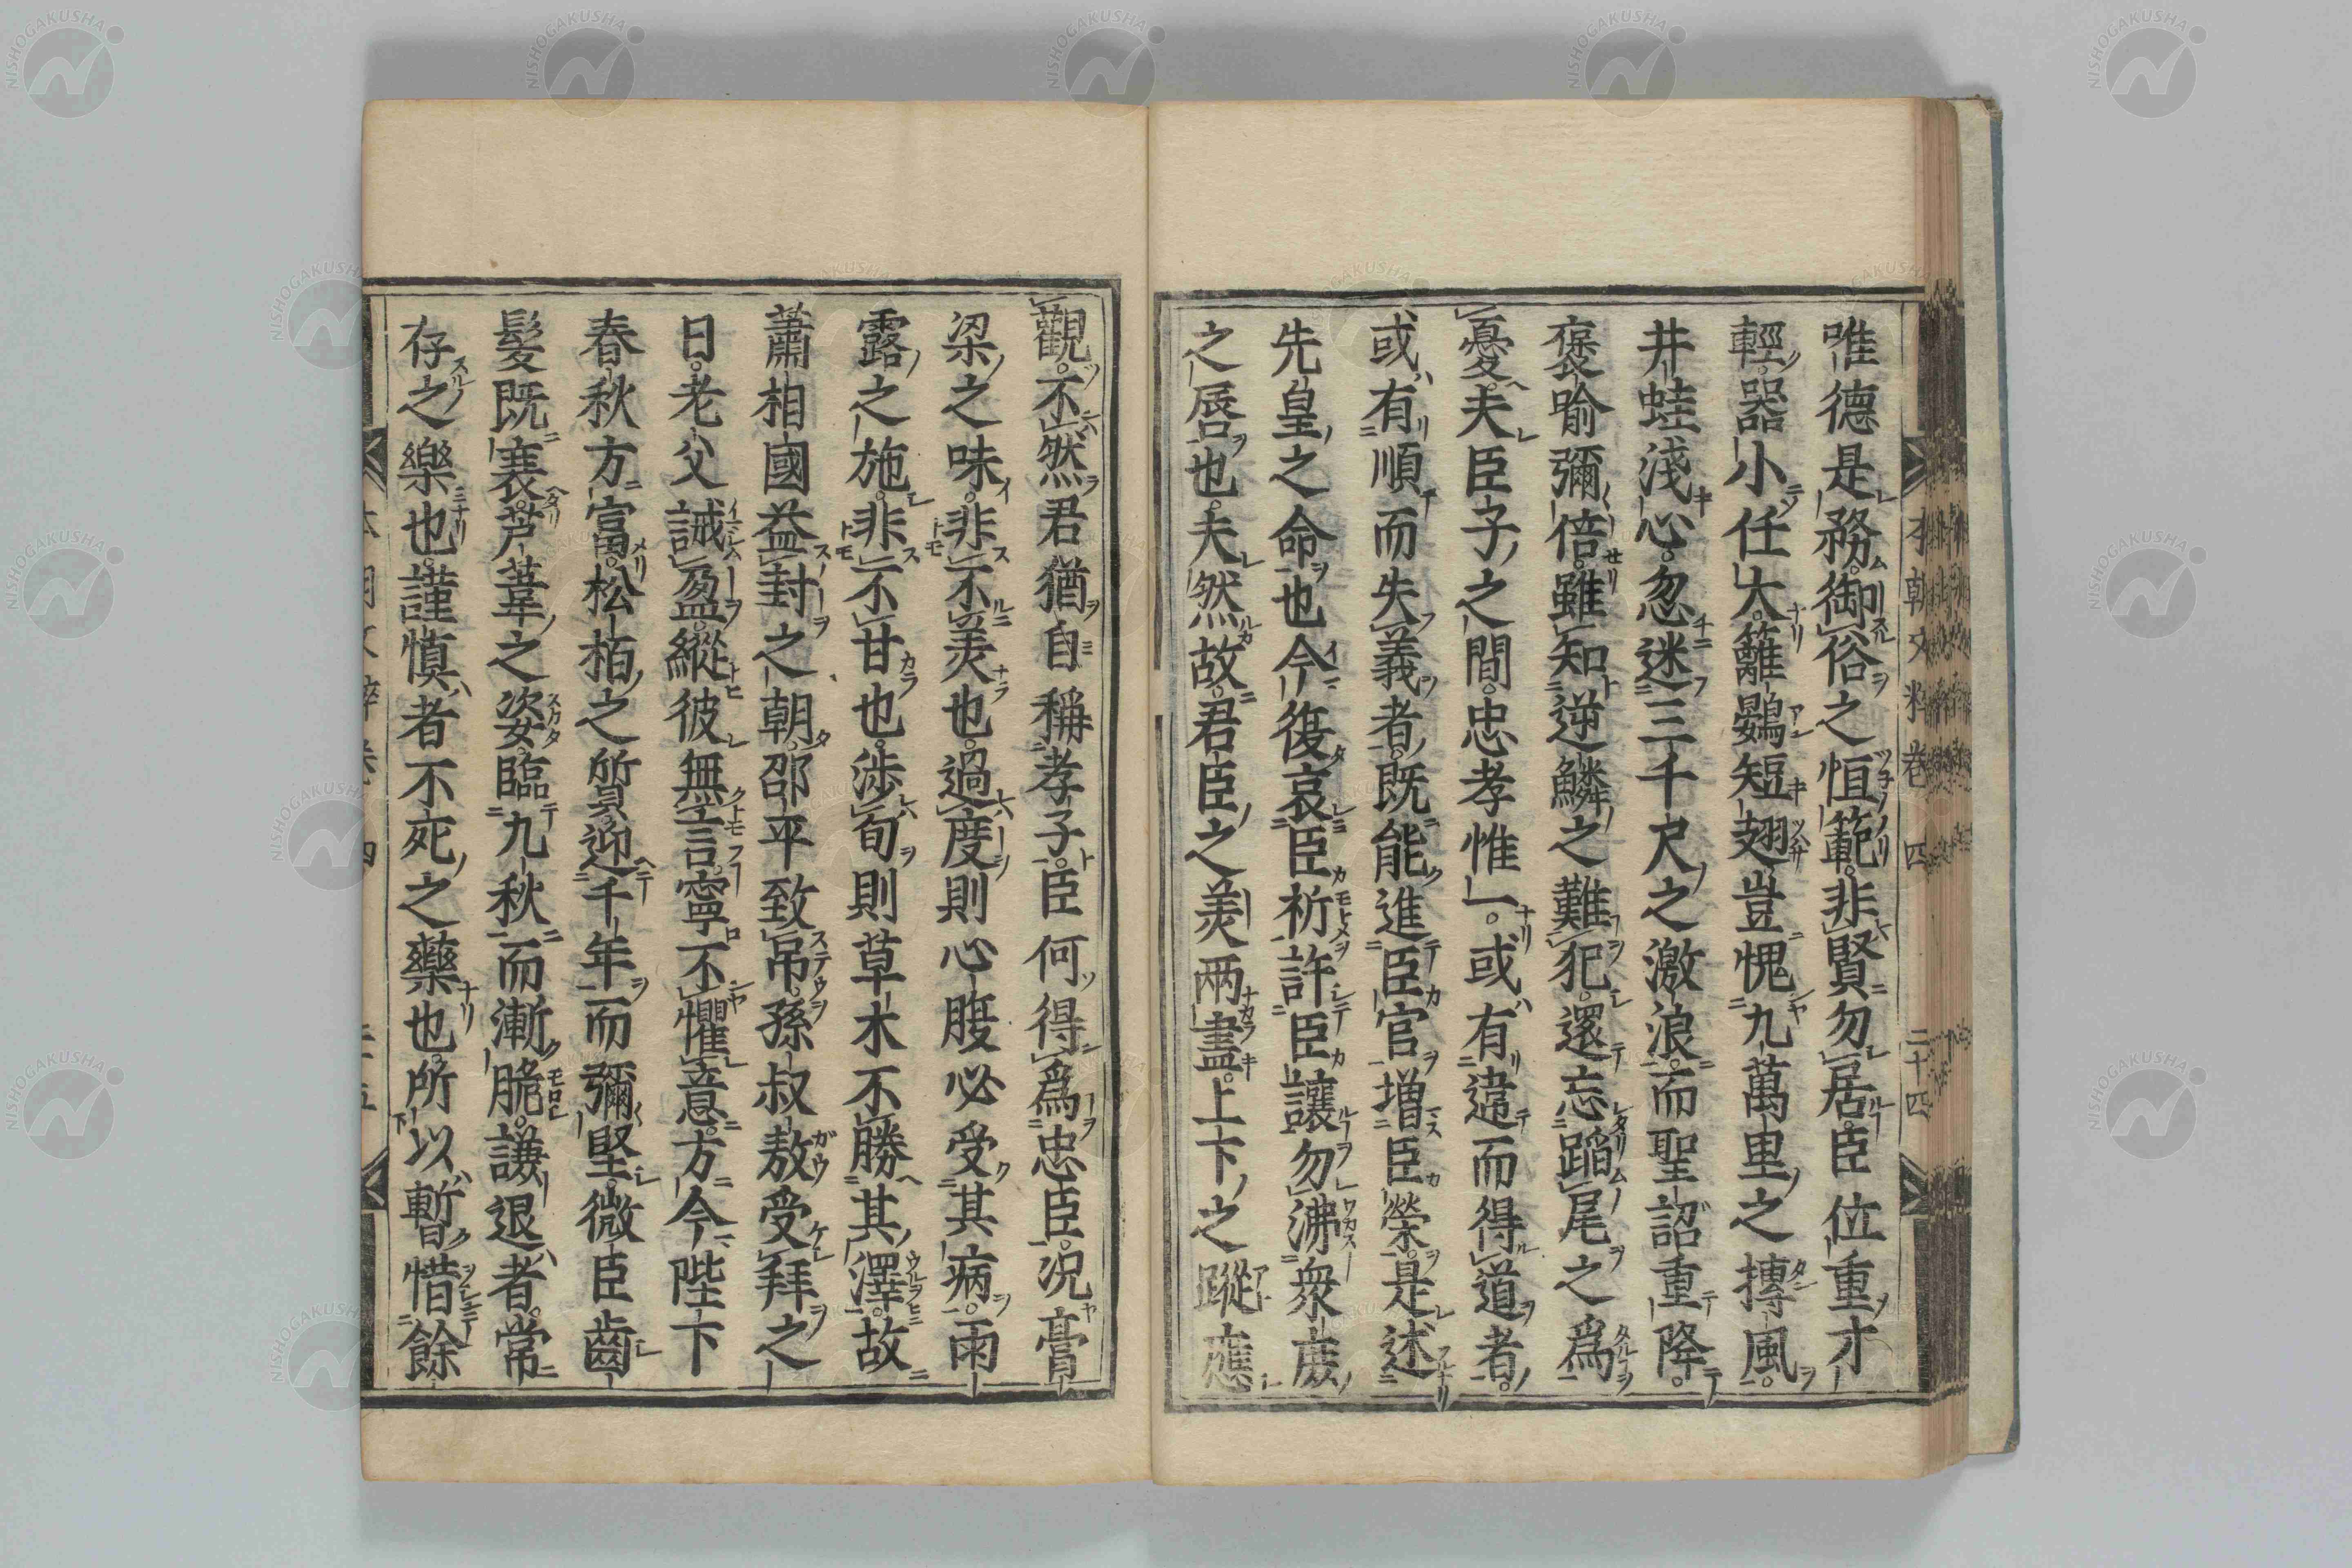 唯德是務。御俗之恒範。非賢勿居。臣位重才
輕。器小任大。籬鷃短翅。豈愧九萬里之摶風。
井蛙淺心。忽迷三千尺之激浪。而聖詔重降。
褒喻彌倍。雖知逆鱗之難犯。還忘蹈尾之爲
憂。夫臣子之間。忠孝惟一。或有違而得道者。
或有順而失義者。既能進臣官。增臣榮。是述
先皇之命也。今復哀臣祈。許臣讓。勿沸衆庶
之唇也。夫然故。君臣之美兩盡。上下之蹤應
觀。不然君猶自稱孝子。臣何得爲忠臣。況膏
梁之味。非不美也。過度則心腹必受其病。雨
露之施。非不甘也。渉旬則草木不勝其澤。故
蕭相國益封之朝。邵平致吊。孫叔敖受拜之
日。老父誡盈。縱彼無言。寧不懼意。方今陛下
春秋方富。松栢之質。迎千年而彌堅。微臣齒
髮既衰。芦葦之姿。臨九秋而漸脆。謙退者。常
存之樂也。謹愼者不死之藥也。所以暫惜餘
本朝文粹卷四
二十四
NISHOGAKUSHA